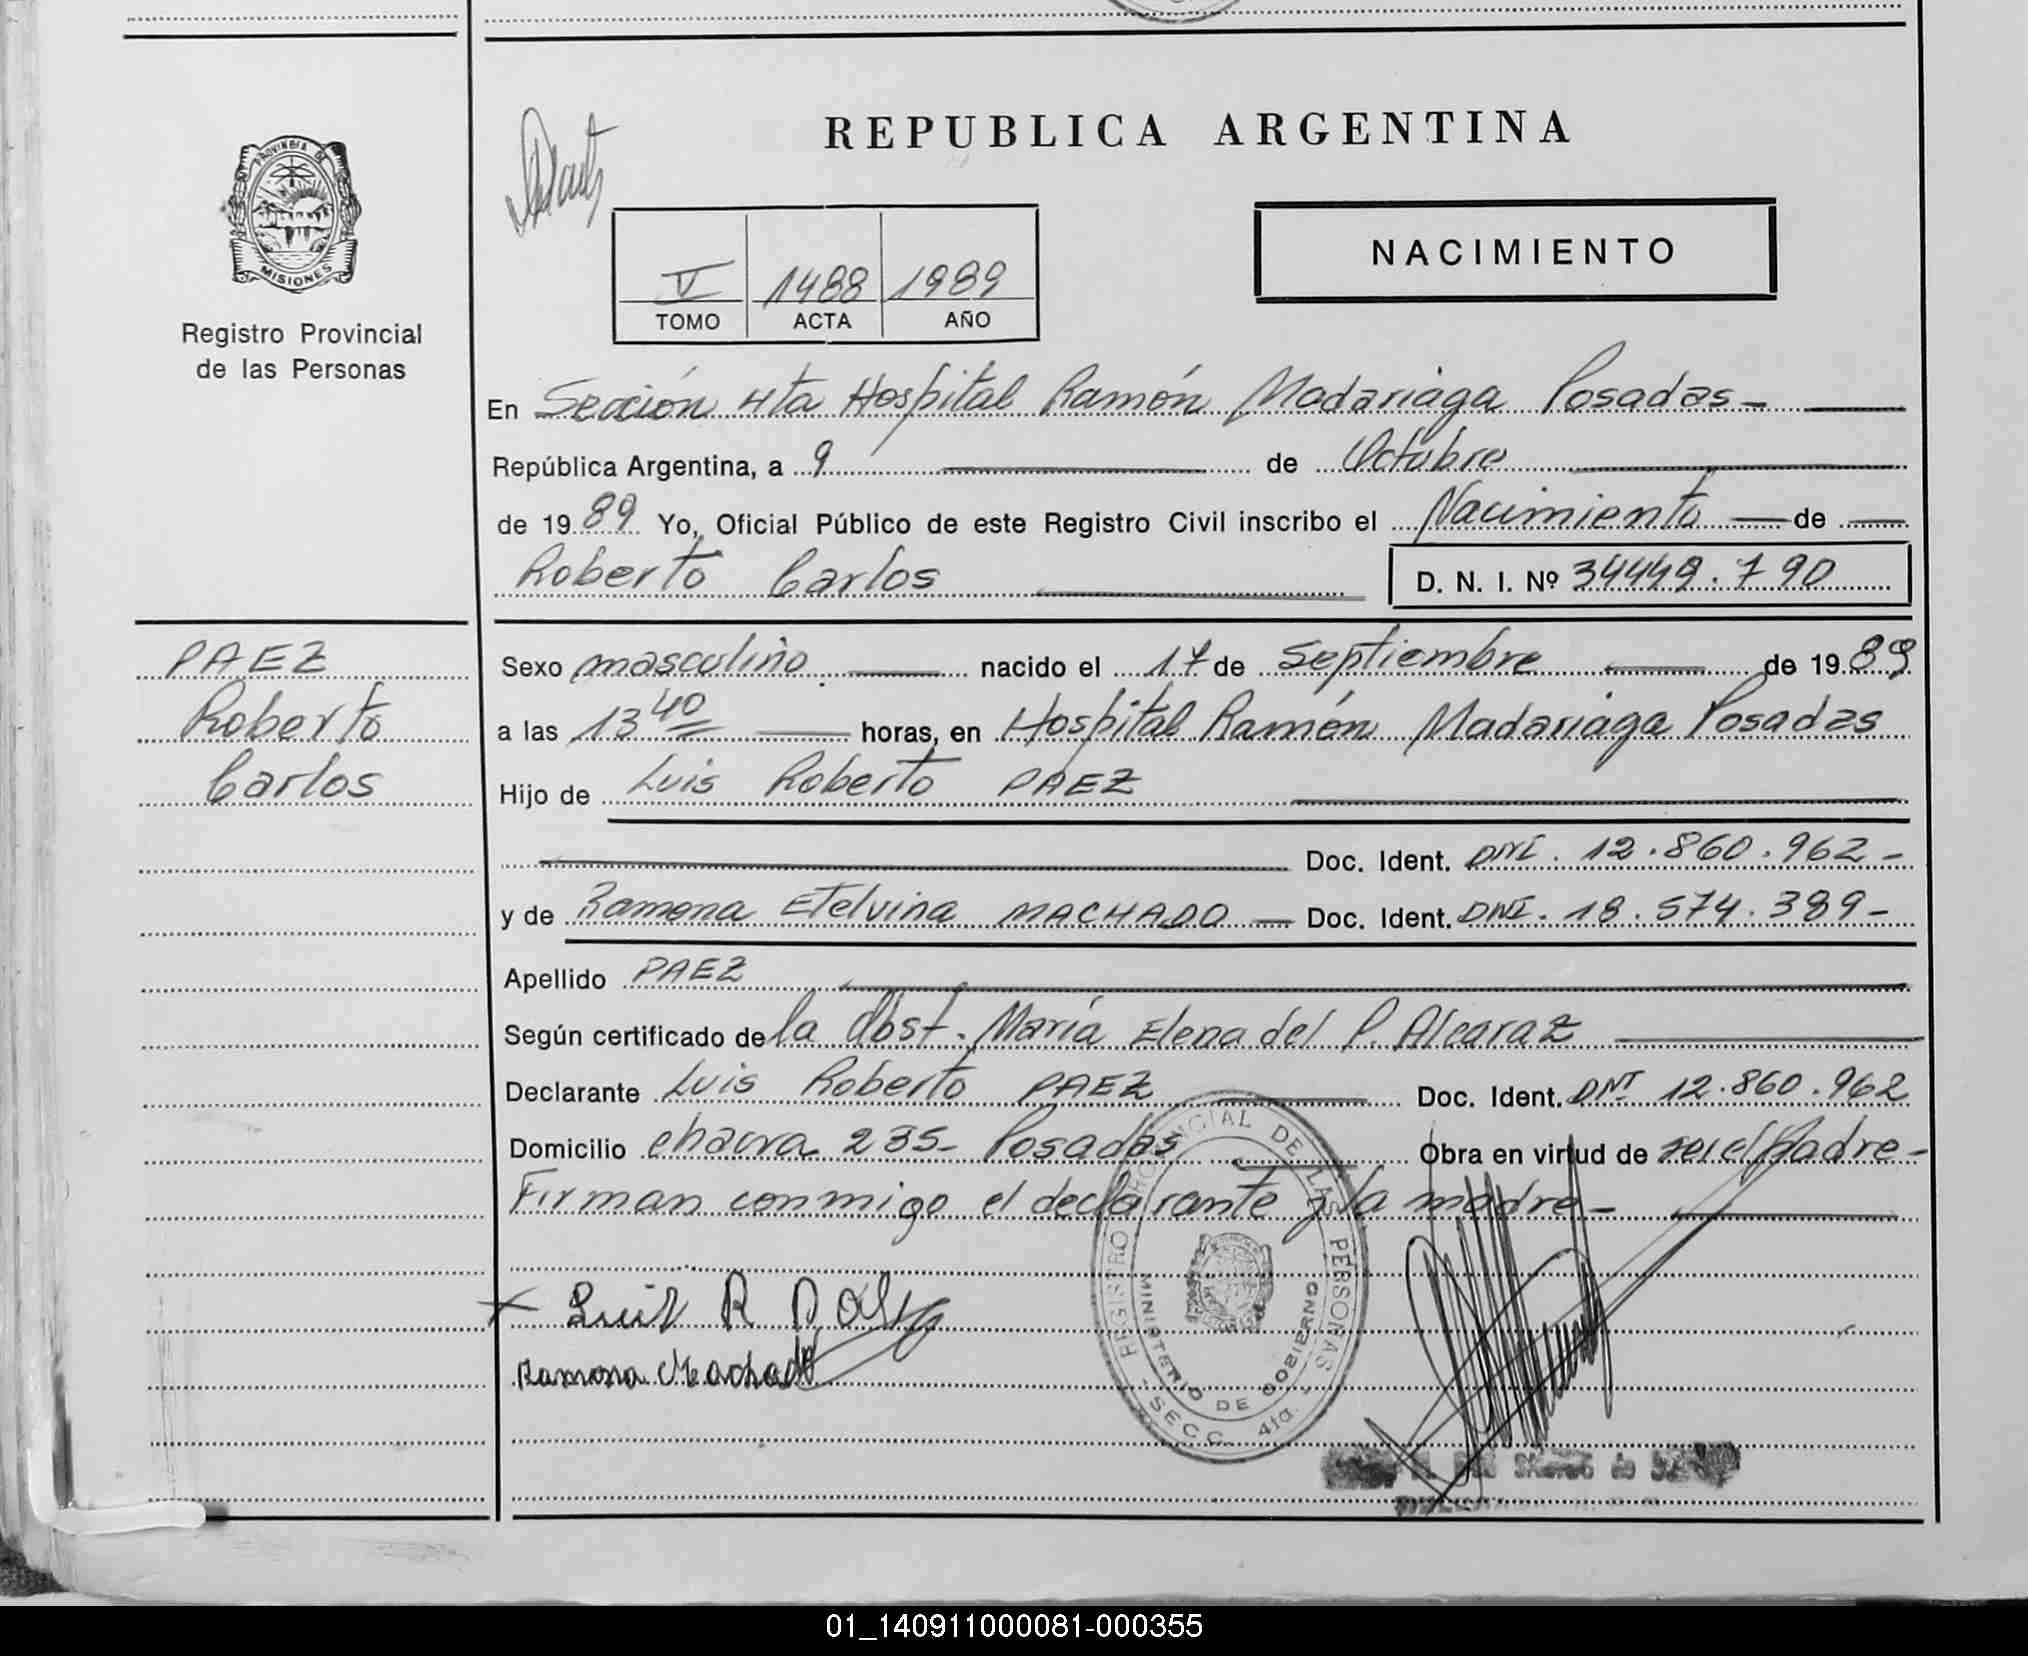 REPUBLICA ARGENTINA
PROVINCIA DE
MISIONES
Registro Provincial
de las Personas
V 1488 1989
TOMO ACTA AÑO
NACIMIENTO
En Sección 4ta Hospital Ramón Madariaga Posadas-
República Argentina, a 9 de Octubre
de 1989 Yo, Oficial Público de este Registro Civil inscribo el Nacimiento de
Roberto Carlos D. N. I. Nº 34449.790
PAEZ
Roberto
Carlos
Sexo masculino nacido el 17 de Septiembre de 1989
a las 13 40 horas, en Hospital Ramón Madariaga Posadas
Hijo de Luis Roberto PAEZ
Doc. Ident. DNI. 12.860.962-
y de Ramona Etelvina MACHADO Doc. Ident. DNI. 18.574.389-
Apellido PAEZ
Según certificado de la Obst. María Elena del P. Alcaraz
Declarante Luis Roberto PAEZ Doc. Ident. DNI 12.860.962
Domicilio chacra 235- Posadas Obra en virtud de ser el Padre-
Firman conmigo el declarante y la madre-
Luis R Paez
Ramona Machado
REGISTRO PROVINCIAL DE LAS PERSONAS
MINISTERIO DE GOBIERNO
SECC. 4ta.
01_140911000081-000355